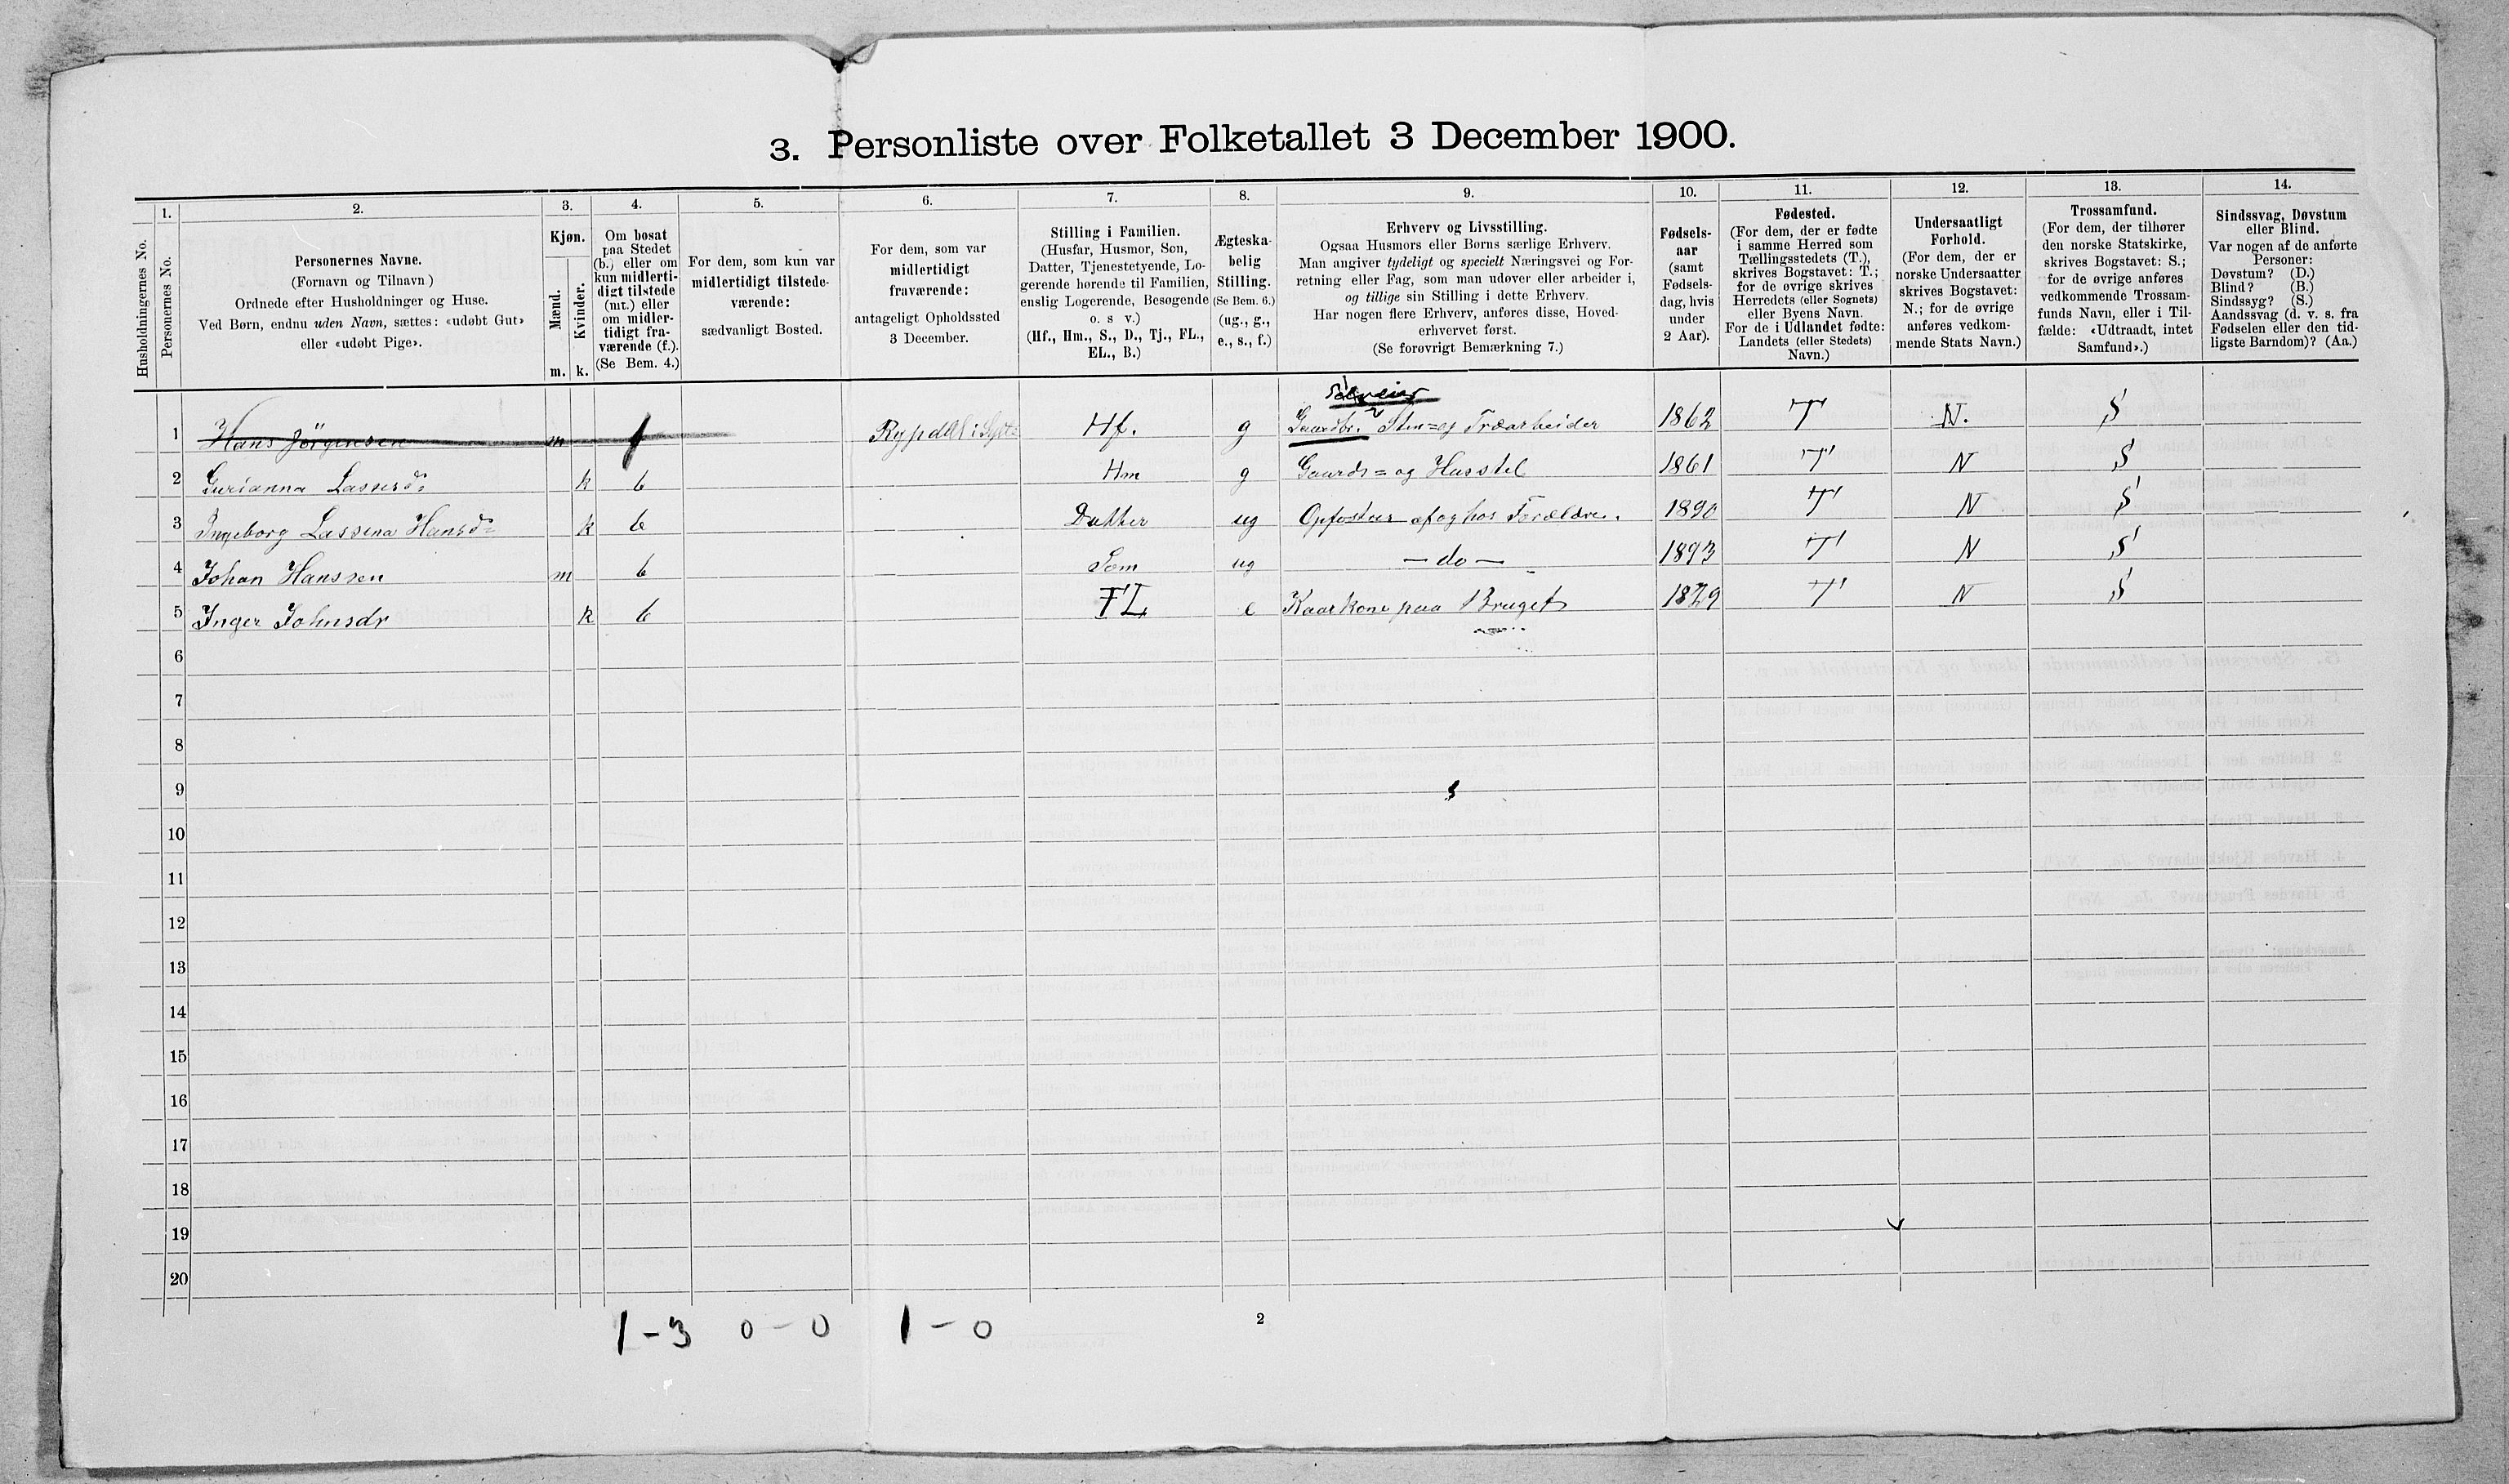 3. Personliste over Folketallet 3 December 1900.
Husholdningernes No.
1.
Personernes No.
2.
Personernes Navne.
(Fornavn og Tilnavn)
Ordnede efter Husholdninger og Huse.
Ved Børn, endnu uden Navn, sættes: «udøbt Gut»
eller «udøbt Pige».
3.
Kjøn.
Mænd.
Kvinder.
m. k.
4.
Om bosat
paa Stedet
(b.) eller om
kun midlerti-
digt tilstede
(mt.) eller
om midler-
tidigt fra-
værende (f.).
(Se Bem. 4.)
5.
For dem, som kun var
midlertidigt tilstede-
værende:
sædvanligt Bosted.
6.
For dem, som var
midlertidigt
fraværende:
antageligt Opholdssted
3 December.
7.
Stilling i Familien.
(Husfar, Husmor, Søn,
Datter, Tjenestetyende, Lo-
gerende hørende til Familien,
enslig Logerende, Besøgende
o. s v.)
(Hf., Hm., S., D., Tj., FL.,
EL., B.)
8.
Ægteska-
belig
Stilling.
(Se Bem. 6.)
(ug., g.,
e., s., f.)
9.
Erhverv og Livsstilling.
Ogsaa Husmors eller Børns særlige Erhverv.
Man angiver tydeligt og specielt Næringsvei og For-
retning eller Fag, som man udøver eller arbeider i,
og tillige sin Stilling i dette Erhverv.
Har nogen flere Erhverv, anføres disse, Hoved-
erhvervet først.
(Se forøvrigt Bemærkning 7.)
10.
Fødsels-
aar
(samt
Fødsels-
dag, hvis
under
2 Aar).
11.
Fødested.
(For dem, der er fødte
i samme Herred som
Tællingsstedets (T.),
skrives Bogstavet: T.;
for de øvrige skrives
Herredets (eller Sognets)
eller Byens Navn.
For de i Udlandet fødte:
Landets (eller Stedets)
Navn.)
12.
Undersaatligt
Forhold.
(For dem, der er
norske Undersaatter
skrives Bogstavet:
N.; for de øvrige
anføres vedkom-
mende Stats Navn.)
13.
Trossamfund.
(For dem, der tilhører
den norske Statskirke,
skrives Bogstavet: S.;
for de øvrige anføres
vedkommende Trossam-
funds Navn, eller i Til-
fælde: «Udtraadt, intet
Samfund».)
14.
Sindssvag, Døvstum
eller Blind.
Var nogen af de anførte
Personer:
Døvstum? (D.)
Blind? (B.)
Sindssyg? (S.)
Aandssvag (d. v. s. fra
Fødselen eller den tid-
ligste Barndom)? (Aa.)
Selveier
1 Hans Jörgensen m f Rypdal i Hf. g Gaardbr. Sten= og Træarbeider 1862 T N. S
2 Gurianna Lassesd: k b Hm g Gaards= og Husstel 1861 T N S
3 Ingeborg Lassena Hansd= k b Datter ug Opfostres af og hos Forældre. 1890 T N S
4 Johan Hanssen m b Søm ug — do — 1893 T N S
5 Inger Johnsdr k b FL e Kaarkone paa Bruget 1829 T N S
6
7
8
9
10
11
12
13
14
15
16
17
18
19
20
1 - 3 0 - 0 1 - 0
2